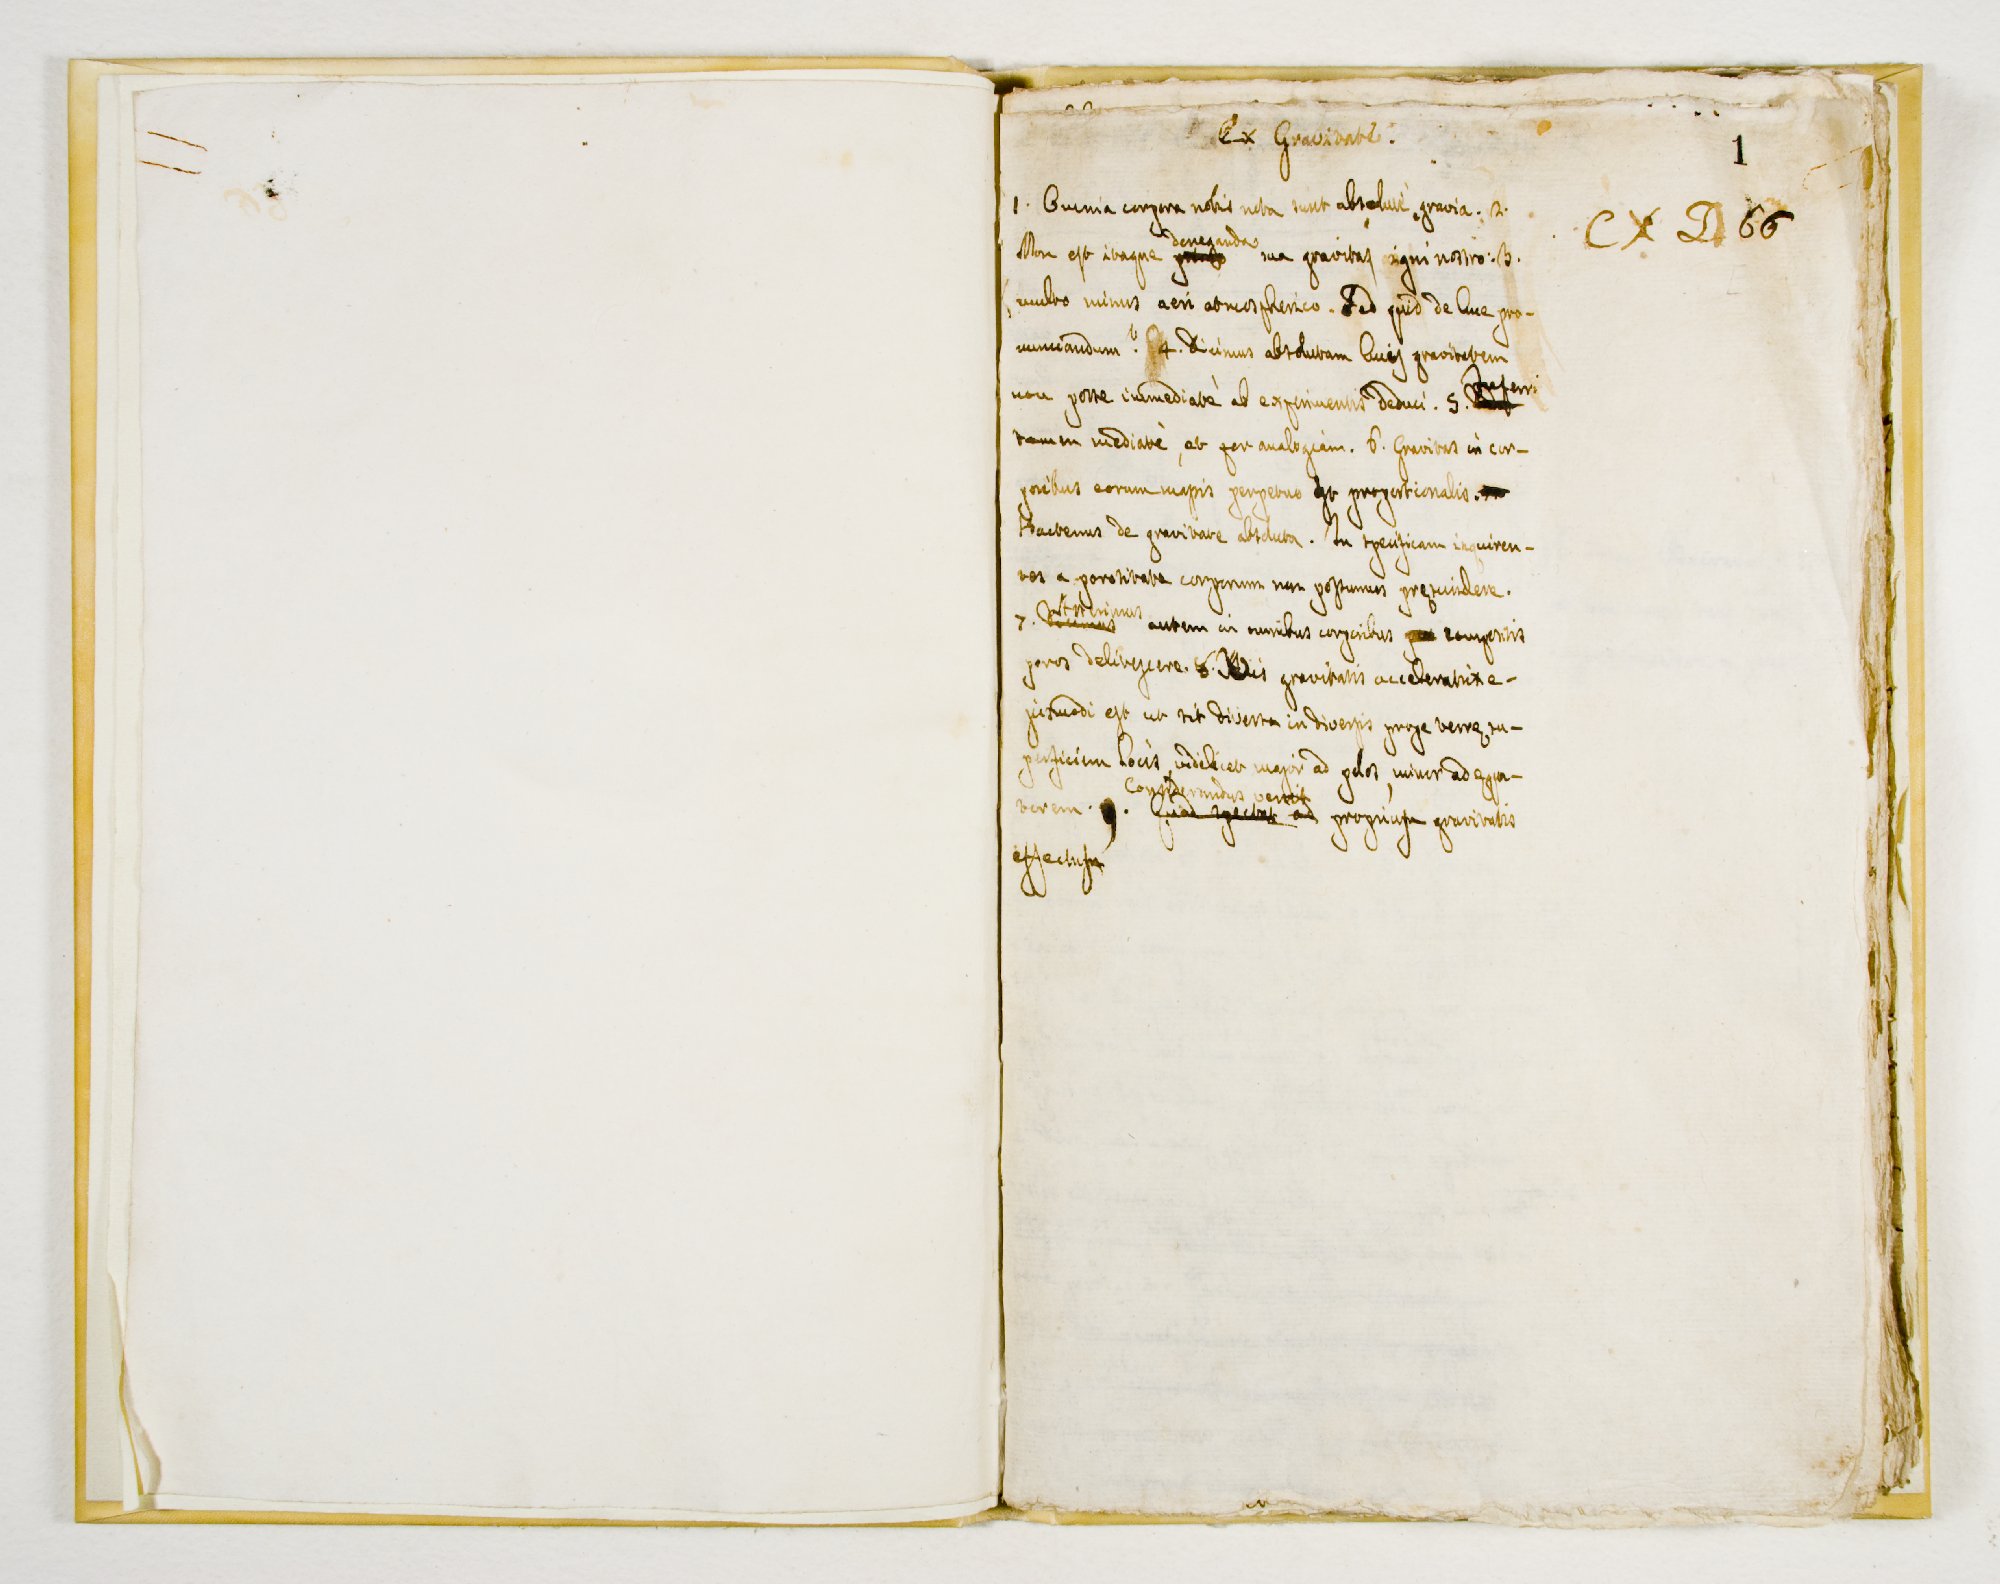 Ex Gravitate.
1
CX D 66
1. Omnia corpora nobis nota sunt absolute gravia. 2.
deneganda
Non est itaque sua gravitas igni nostro: 3.
multo minus aeri atmospherico. Sed quid de luce pro-
nunciandum? 4. Dicimus absolutam lucis gravitatem
non posse immediatè ab experimentis deduci. 5. Inferri
tamen mediatè, et per analogiam. 6. Gravitas in cor-
poribus eorum massis perpetuo est proportionalis.
Hactenus de gravitate absoluta. In specificam inquiren-
tes a porositate corporum non possumus pręscindere.
Asserimus
7. autem in omnibus corporibus compositis
poros delitescere. 8. Vis gravitatis acceleratrix e-
jusmodi est ut sit diversa in diversis prope terrę su-
perficiem locis, videlicet major ad polos, minor ad equa-
Considerandus venit
torem. 9. Quod spectat ad proprium gravitatis
effectum